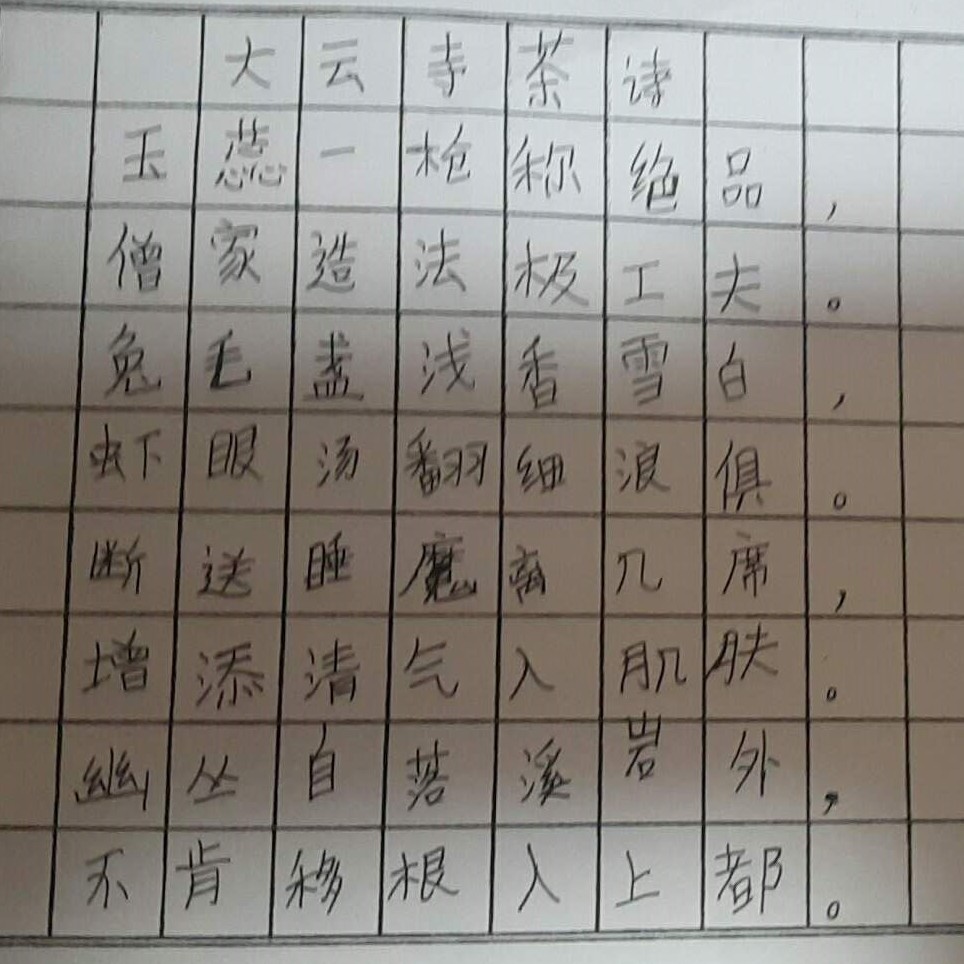 大云寺茶诗
玉蕊一枪称绝品，
僧家造法极工夫。
兔毛盏浅香雪白，
虾眼汤翻细浪俱。
断送睡魔离几席，
增添清气入肌肤。
幽丛自落溪岩外，
不肯移根入上都。